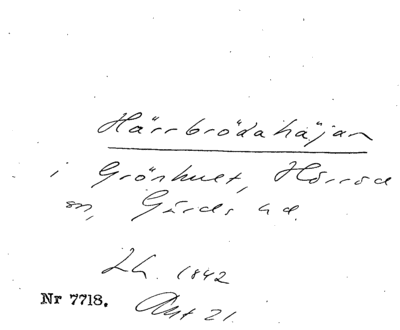 Härrbrödahäjan
i Grönhult, Hörröd
sn, Gärds hd.
LH. 1842
Nr 7718. Akt 21.